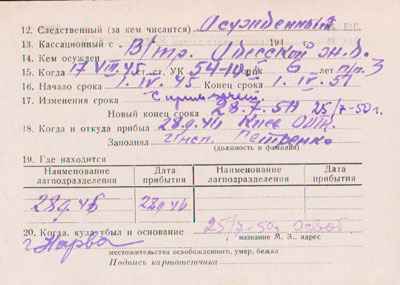 12. Следственный (за кем числится) Осужденный
13. Кассационный с 194
14. Кем осужден В/тр. Одесской ж.д.
15. Когда 17 VIII.45 ст. УК 54-10 срок 6 лет п/п. 3
16. Начало срока 1. IV. 45 Конец срока 1. IV. 51
17. Изменения срока
Новый конец срока 28.7.50 25/7-50г.
18. Когда и откуда прибыл 28.9.46 Киев
Заполнил Петренко
(должность и фамилия)
19. Где находится
Наименование лагподразделения Дата прибытия Наименование лагподразделения Дата прибытия
28.9.46 28.9.46
20. Когда, куда убыл и основание 25/7-50г. освоб
название М. З., адрес
г. Нарва
местожительства освобожденного, умер, бежал
Подпись картотетчика